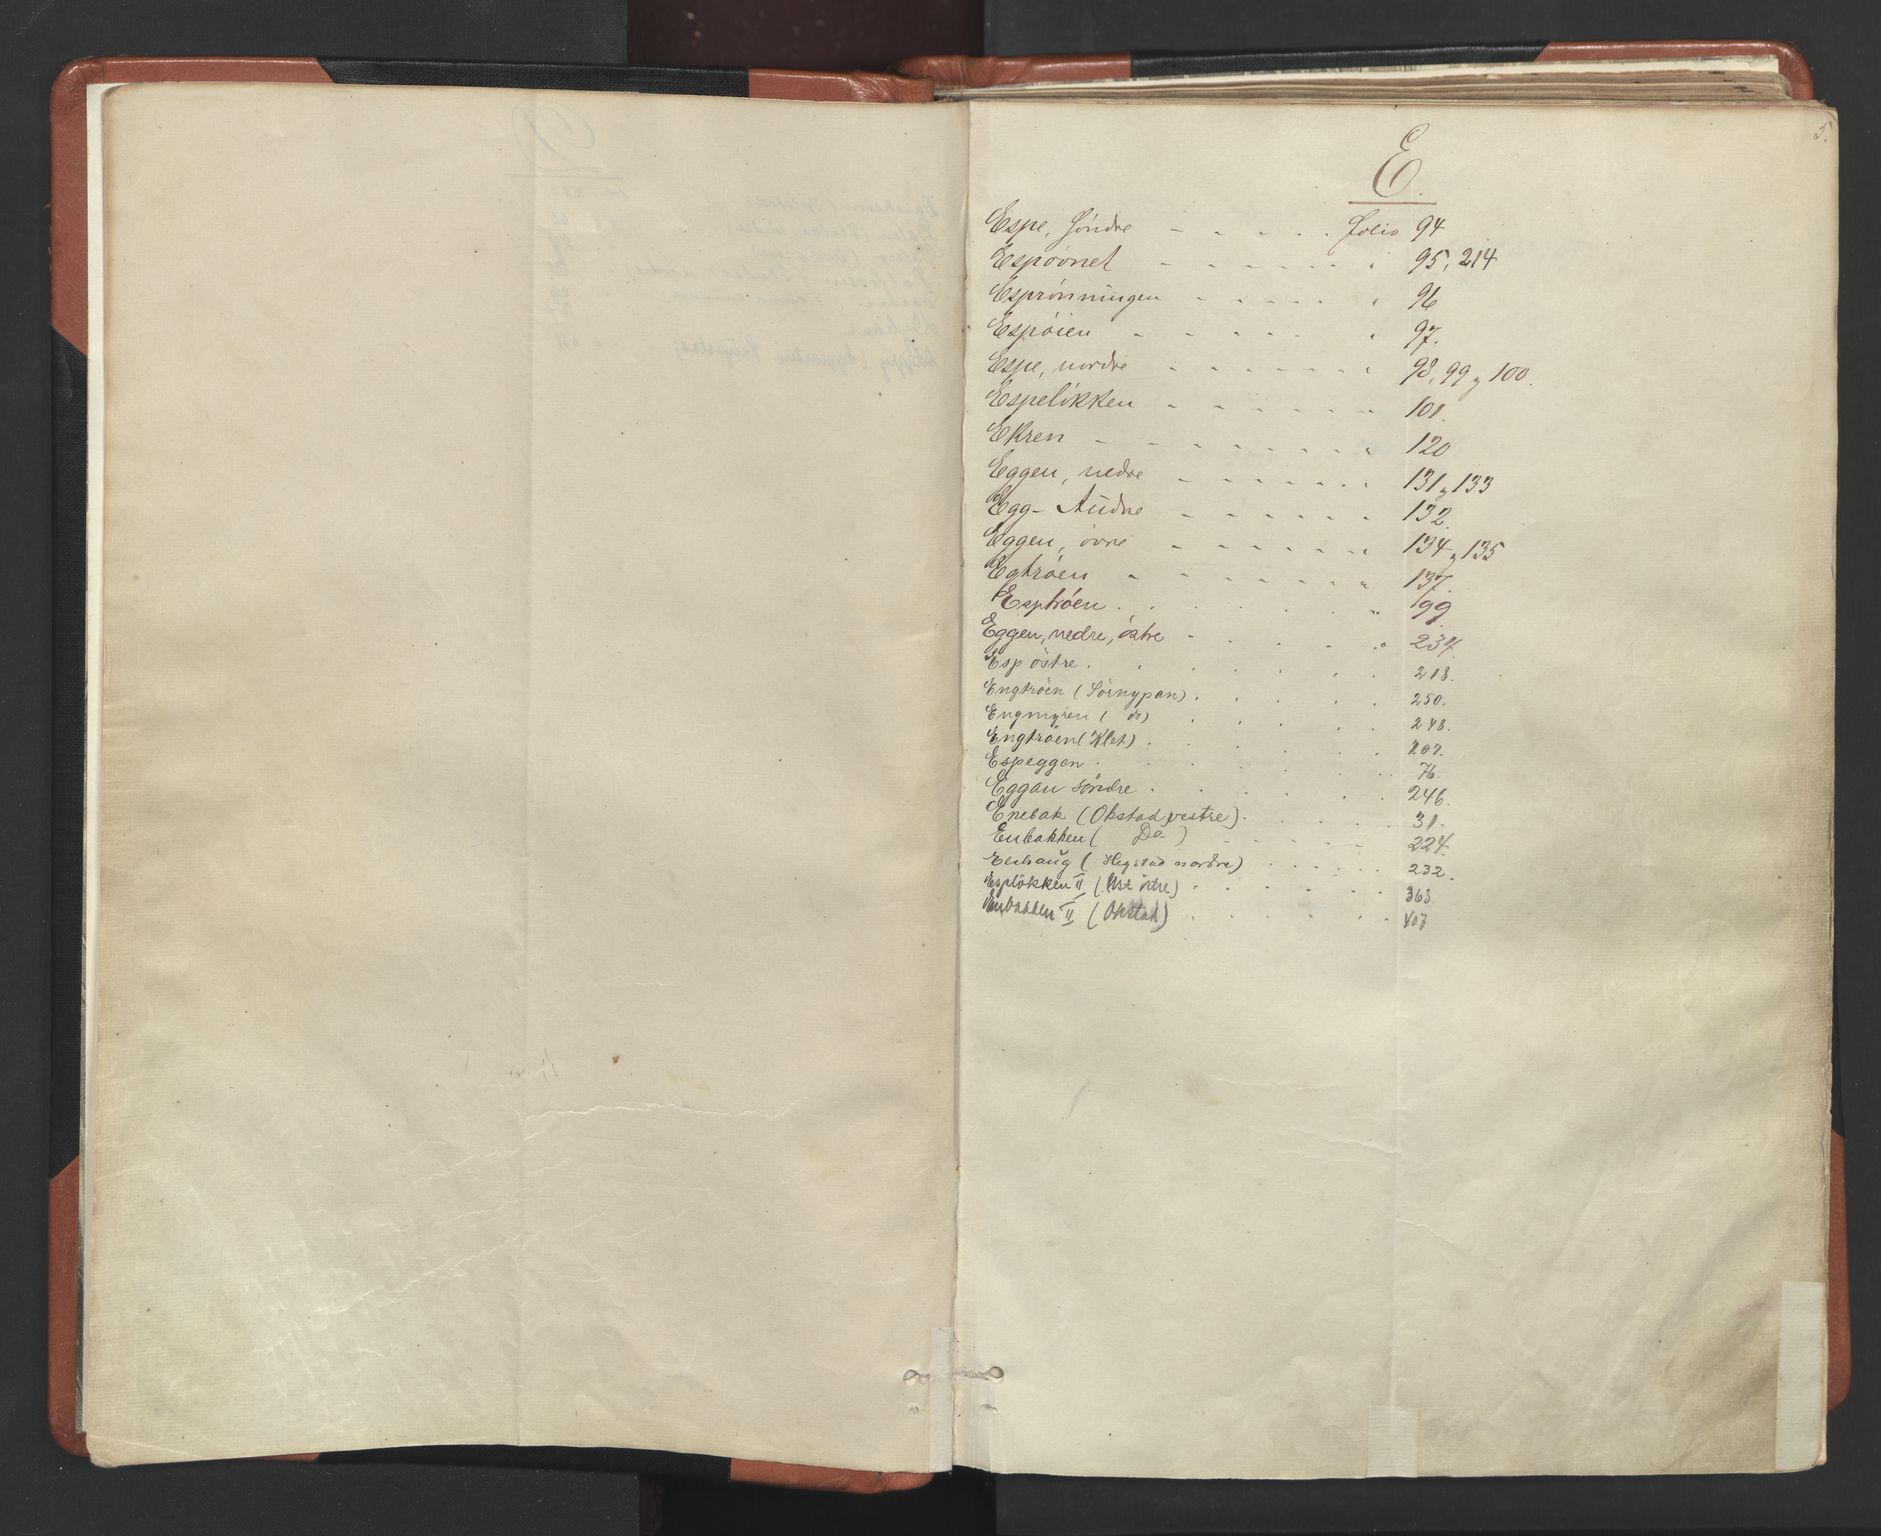 5.
E.
Espe, söndre - - - - - folio 94
Espövnet - - - - - - " 95, 214
Esprönningen - - - - - " 96
Espöien - - - - - - " 97.
Espe, nordre - - - - - - " 98, 99 og 100.
Espelökken - - - - - - " 101.
Ekren - - - - - - - " 120
Eggen, nedre - - - - - - " 131 og 133
Egg-Audne - - - - - - " 132.
Eggen, övre - - - - - - " 134 og 135
Egtröen - - - - - - " 137.
Esptröen . . . . . . " 199
Eggen, nedre, östre - . . . . " 234.
Esp östre . . . . . . . 218.
Engtröen (Sörnypan) . . . . . 250.
Engmyren ( do) . . . . . 248.
Engtröen (Klet) . . . . . . 207.
Espeggen . . . . . . . 76.
Eggan söndre . . . . . . 246.
Enebak (Okstad vestre) . . . . . 31.
Enbakken ( Do ) . . . . . 224.
Elshaug (Hegstad nordre) . . . . . 232.
Esplökken II (Ust östre) . . . . . 363.
Enbakken II (Okstad) . . . . . 407